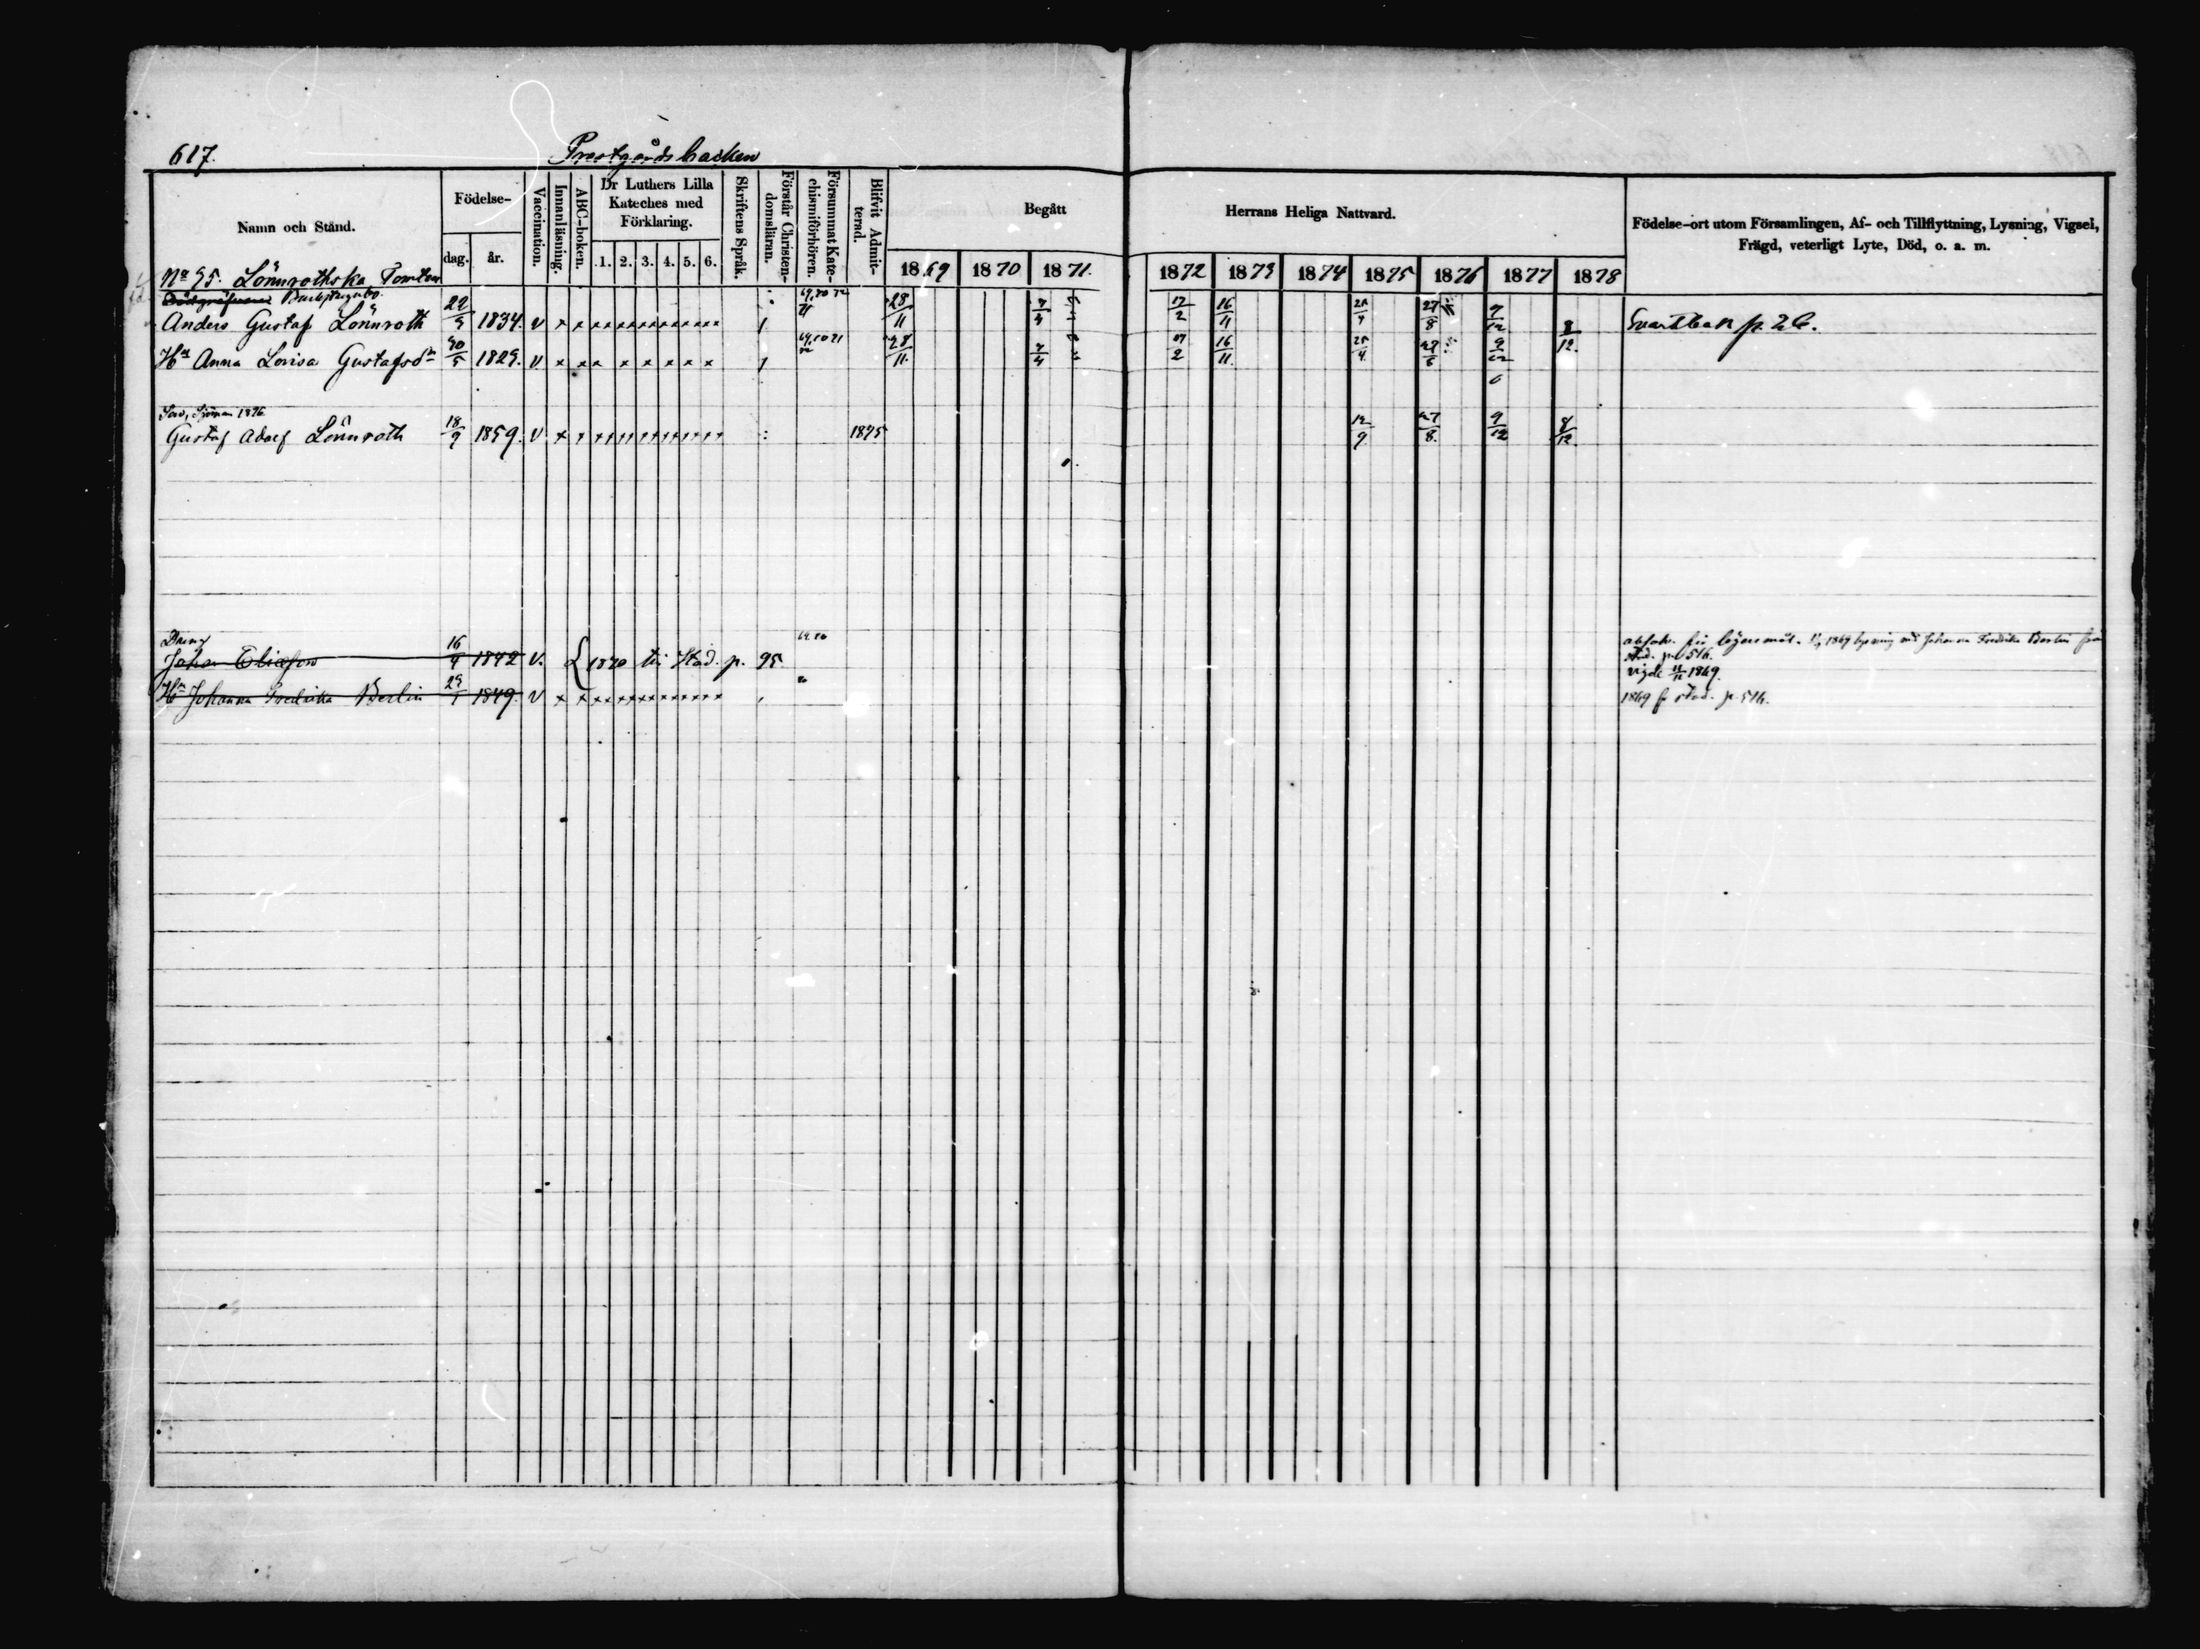 617.
Prestgårdsbacken
Namn och Stånd.
Födelse-
dag.
år.
Vaccination.
Innanläsning.
ABC-boken.
Dr Luthers Lilla
Kateches med
Förklaring.
1. 2. 3. 4. 5. 6.
Skriftens Språk.
Förstår Christen-
domsläran.
Försummat Kate-
chismiförhören.
Blifvit Admit-
terad.
Begått
Herrans Heliga Nattvard.
1869 1870 1871. 1872 1873 1874 1875 1876 1877 1878
Födelse-ort utom Församlingen, Af- och Tillflyttning, Lysning, Vigsel,
Frägd, veterligt Lyte, Död, o. a. m.
No 95. Lönnrothska Tomten
Anders Gustaf Lönnroth 22/9 1834. v 28/11 7/4 17/2 16/11 27/8 9/12 8/12. Svartbäck p. 26.
Hu Anna Lovisa Gustafsdr 30/5 1829. v 28/11 7/4 16/11 9/12
Son, Sjöman 1876
Gustaf Adolf Lönnroth 18/9 1859. v 1875 12/9 27/8 9/12 8/12
Dreng
Johan Eliasson 16/4 1842 v. 1870 till Stad. p. 95. 1869 lysning med Johanna Fredrika Berlin från
stad. p. 516.
vigde 1869.
Hu Johanna Fredrika Berlin 29/1 1849. v 1869 fr stad. p. 516.